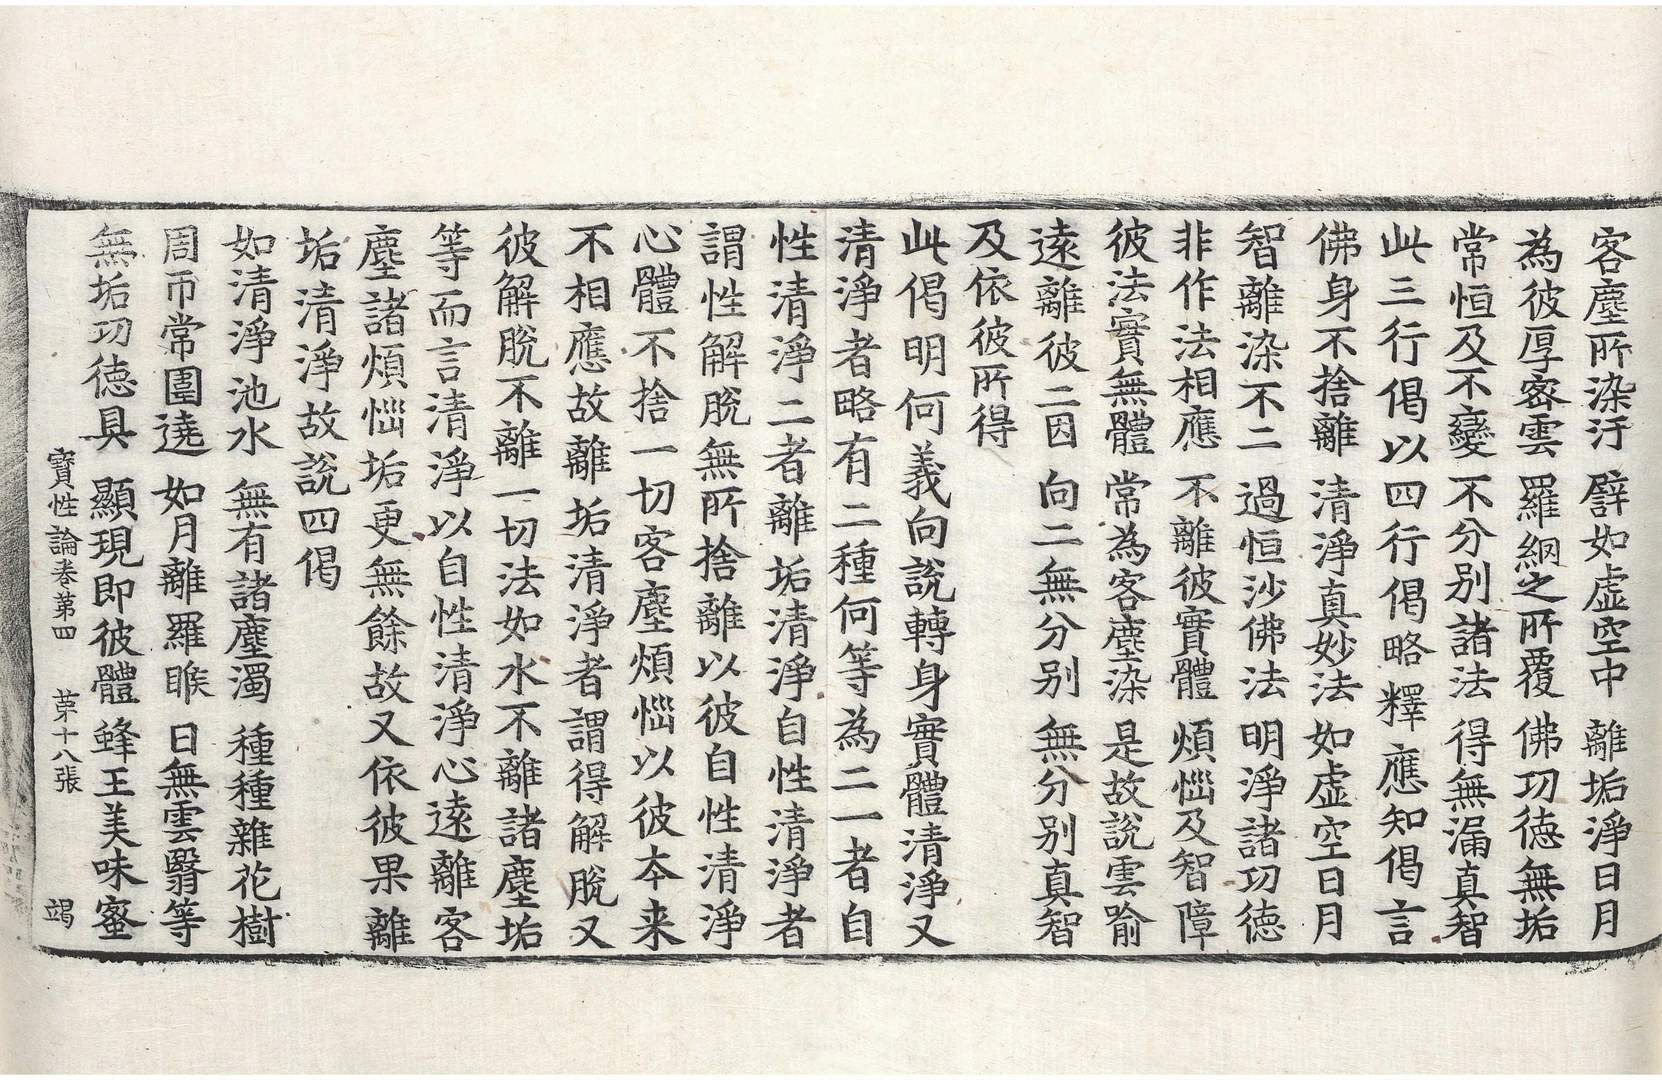 客塵所染汙 譬如虛空中 離垢淨日月
為彼厚密雲 羅網之所覆 佛功德無垢
常恒及不變 不分別諸法 得無漏真智
此三行偈以四行偈略釋應知偈言
佛身不捨離 清淨真妙法 如虛空日月
智離染不二 過恒沙佛法 明淨諸功德
非作法相應 不離彼實體 煩惱及智障
彼法實無體 常為客塵染 是故說雲喻
遠離彼二因 向二無分別 無分別真智
及依彼所得
此偈明何義向說轉身實體清淨又
清淨者略有二種何等為二一者自
性清淨二者離垢清淨自性清淨者
謂性解脫無所捨離以彼自性清淨
心體不捨一切客塵煩惱以彼本来
不相應故離垢清淨者謂得解脫又
彼解脫不離一切法如水不離諸塵垢
等而言清淨以自性清淨心遠離客
塵諸煩惱垢更無餘故又依彼果離
垢清淨故說四偈
如清淨池水 無有諸塵濁 種種雜花樹
周帀常圍遶 如月離羅睺 日無雲翳等
無垢功德具 顯現即彼體 蜂王美味蜜
寶性論卷第四 第十八張 竭